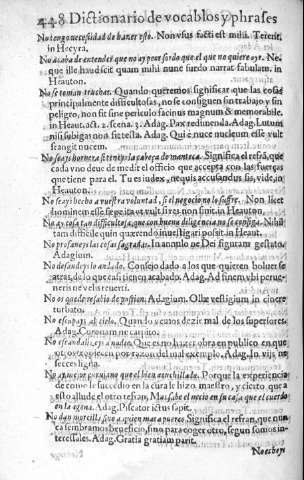 448 Dictionario de vocablos y phrases
No tengo necessidad de hazer esto. Non vsus facti est mihi. Terent.
in Hecyra.
No acaba de entender que no ay peor sordo que el que no quiere oyr. Ne
que ille haud scit quam mihi nunc surdo narrat fabulam. in
Heauton.
No se toman truchas. Quando queremos significar que las cosas
principalmente difficultosas, no se consiguen sin trabajo y sin
peligro, non fit sine periculo facinus magnum & memorabile.
in Heaut. act. 2. scena. 3. Adag. Pax redimenda. Adag. Lutum
nisi subigatur
fit testa. Adag. Qui è nuce nucleum esse vult
frangit nucem.
No seays hornera si teneys la cabeça de manteca. Significa el refrã, que
cada vno deue de medir el officio que accepta con las fuerças
que tiene para el. Tu es iudex, ne quis accusandus sis, vide, in
Heauton.
No se ay hecho a vuestra voluntad, si el negocio no lo suffre. Non licet
hominem esse sæpe ita vt vult si res non sinit in Heauton.
No ay cosa tan difficultosa, que con buena diligencia no se consiga. Nihil
tam difficile quin quærendo inuestigari possit in Heaut.
No profaneys las cosas sagradas. In annulo ne Dei figuram gestato.
Adagium.
No desandeys lo andado. Consejo dado a los que quieren boluer se
atras, de lo que casi tienen acabado. Adag. Ad finem vbi perue-
neris ne velis reuerti.
No os quede resabio de passion. Adagium. Ollæ vestigium in cinere
turbato.
No escupays al cielo. Quando vno no deue dezir mal de los superiores.
Adag. Coronam ne carpito.
No escandalizeys a nadie. Que es no hazer obra en publico en que
otros tropiecen por razon del mal exemplo. Adag. In vijs ne
seces ligna.
cirujano que el bien acuchillado. Porque la experiencia
de como le succedio en la cura le hizo maestro, y ciento que a
esto allude el otro refran, Mas sabe el necio en su casa que el cuerdo
en la agena. Adag. Piscator ictus sapit.
No dan morcilla sino a quien mata puerco. Significa el refran, que nun
ca sembramos beneficio, sino para coger otro, segun somos in-
teressales. Adag. Gratia gratiam parit.
No echeys